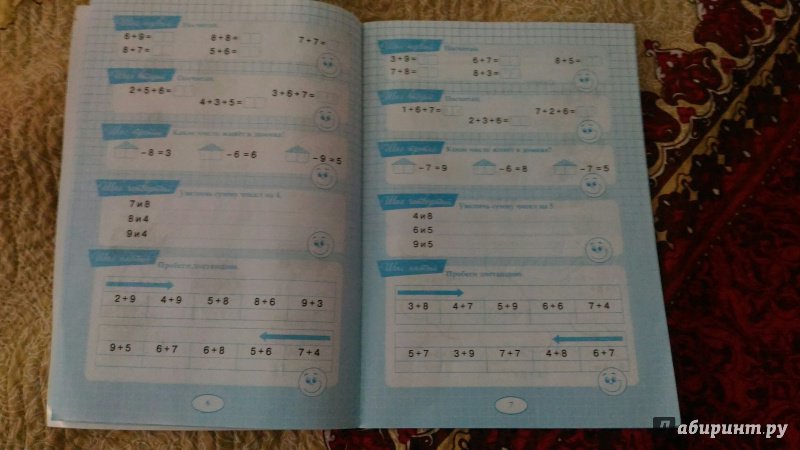 Шаг первый Посчитай.
6+9= 8+8= 7+7=
8+7= 5+6=
Шаг второй Посчитай.
2+5+6= 4+3+5= 3+6+7=
Шаг третий Какое число живёт в домике?
-8=3 -6=6 -9=5
Шаг четвёртый Увеличь сумму чисел на 4.
7и8
8и4
9и4
Шаг пятый Пробеги дистанцию.
2+9 4+9 5+8 8+6 9+3
9+5 6+7 6+8 5+6 7+4
6
Шаг первый Посчитай.
3+9= 6+7= 8+5=
7+8= 8+3=
Шаг второй Посчитай.
1+6+7= 2+3+6= 7+2+6=
Шаг третий Какое число живёт в домике?
-7=9 -6=8 -7=5
Шаг четвёртый Увеличь сумму чисел на
4и8
6и5
9и5
Шаг пятый Пробеги дистанцию.
3+8 4+7 5+9 6+6 7+4
5+7 3+9 7+7 4+8 6+7
7
Лабиринт.ру